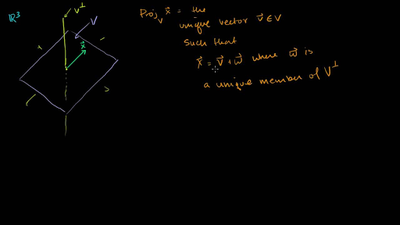 ℝ³
V⊥
V
x⃗
Proj_V x⃗ = the
unique vector v⃗ ∈ V
such that
x⃗ = v⃗ + w⃗ where w⃗ is
a unique member of V⊥